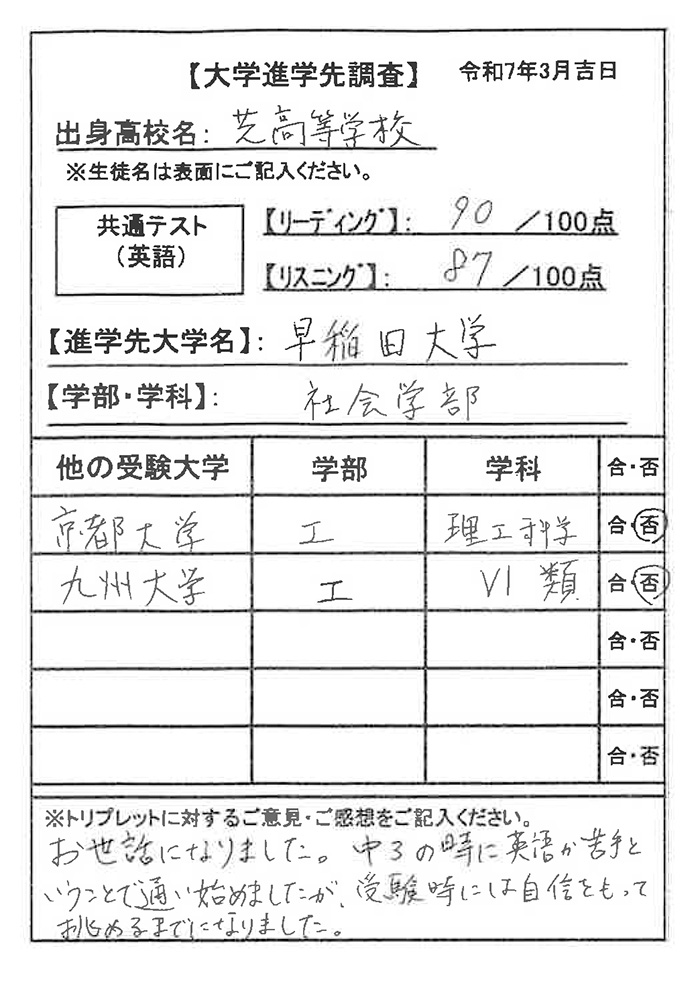 【大学進学先調査】 令和7年3月吉日
出身高校名: 芝高等学校
※生徒名は表面にご記入ください。
共通テスト
(英語)
【リーディング】: 90 /100点
【リスニング】: 87 /100点
【進学先大学名】: 早稲田大学
【学部・学科】: 社会学部
他の受験大学 学部 学科 合・否
京都大学 工 理工科学 合・否
九州大学 工 VI類 合・否
合・否
合・否
合・否
※トリプレットに対するご意見・ご感想をご記入ください。
お世話になりました。中3の時に英語が苦手と
いうことで通い始めましたが、受験時には自信をもって
挑めるまでになりました。